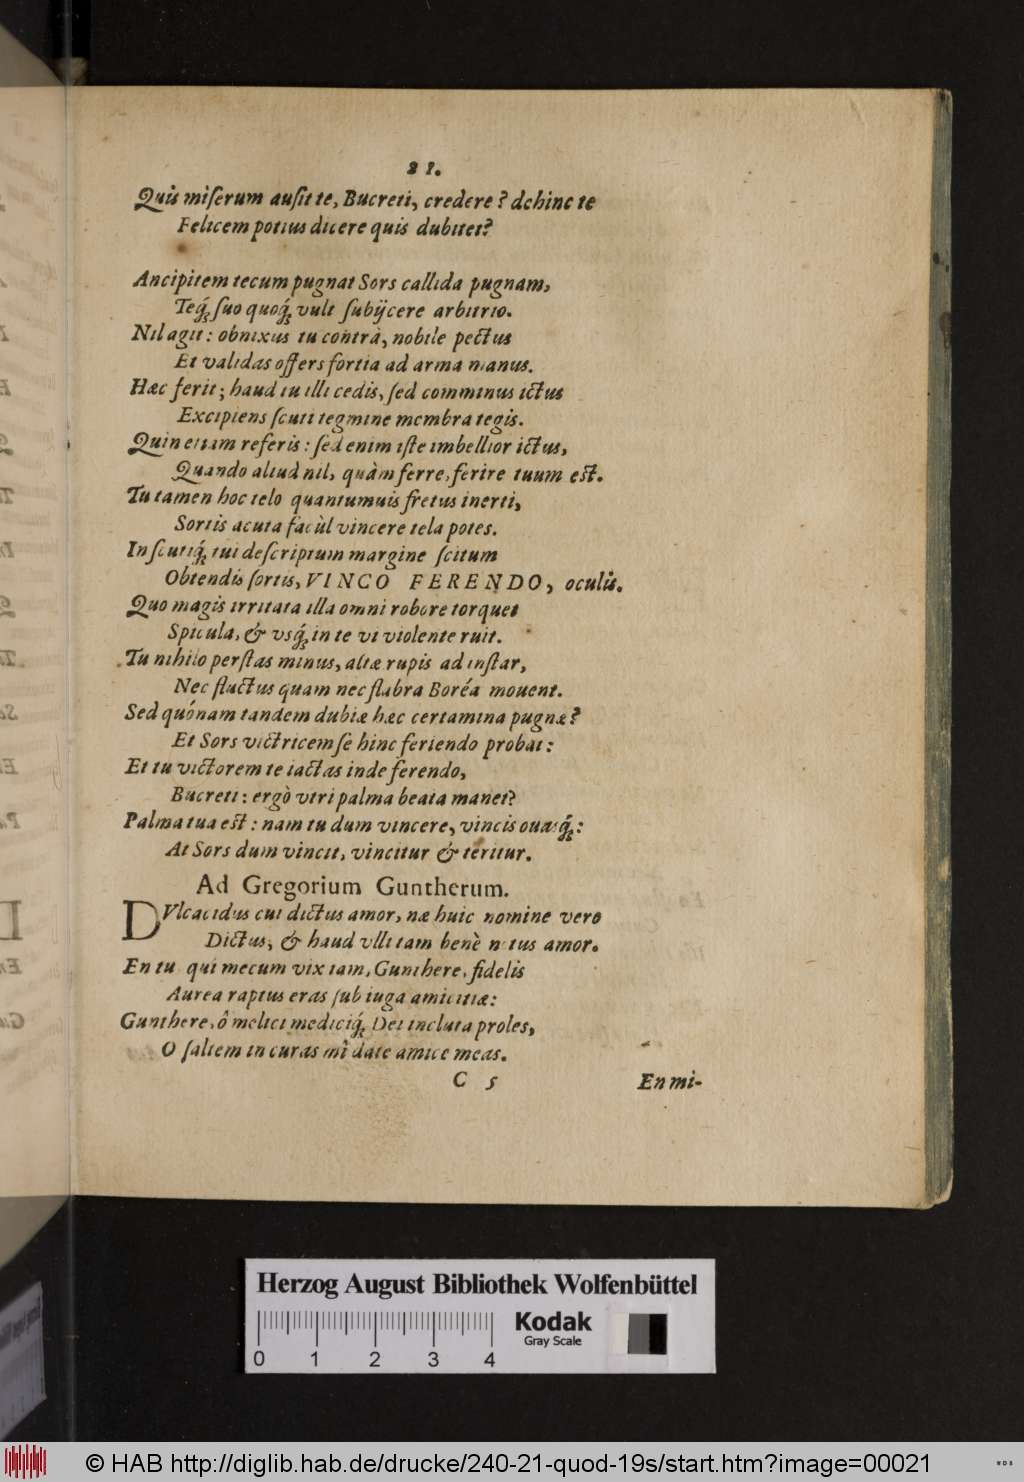 21.
Quis miſerum auſit te, Bucreti, credere? dehinc te
Felicem potius dicere quis dubitet?
Ancipitem tecum pugnat Sors callida pugnam,
Teq́; ſuo quoq́; vult ſubijcere arbitrio.
Nil agit: obnixus tu contrà, nobile pectus
Et validas offers fortia ad arma manus.
Hæc ferit; haud tu illi cedis, ſed comminus ictus
Excipiens ſcuti tegmine membra tegis.
Quin etiam referis: ſed enim iſte imbellior ictus,
Quando aliud nil, quàm ferre, ferire tuum eſt.
Tu tamen hoc telo quantumuis fretus inerti,
Sortis acuta facùl vincere tela potes.
In ſcutiq́; tui deſcriptum margine ſcitum
Obtendis ſortis, VINCO FERENDO, oculis.
Quo magis irritata illa omni robore torquet
Spicula, & vsq́; in te vt violente ruit.
Tu nihilo perſtas minus, altæ rupis ad inſtar,
Nec fluctus quam nec flabra Boréa mouent.
Sed quónam tandem dubiæ hæc certamina pugnæ?
Et Sors victricem ſe hinc feriendo probat:
Et tu victorem te iactas inde ferendo,
Bucreti: ergò vtri palma beata manet?
Palma tua eſt: nam tu dum vincere, vincis ouasq́;:
At Sors dum vincit, vincitur & teritur.
Ad Gregorium Guntherum.
DVlcacidus cui dictus amor, næ huic nomine vero
Dictus, & haud vlli tam benè notus amor.
En tu qui mecum vix tam, Gunthere, fidelis
Aurea raptus eras ſub iuga amicitiæ:
Gunthere, ô melici mediciq́; Dei incluta proles,
O ſaltem in curas mî date amice meas.
C 5 En mi-
Herzog August Bibliothek Wolfenbüttel
Kodak
Gray Scale
0 1 2 3 4
© HAB http://diglib.hab.de/drucke/240-21-quod-19s/start.htm?image=00021